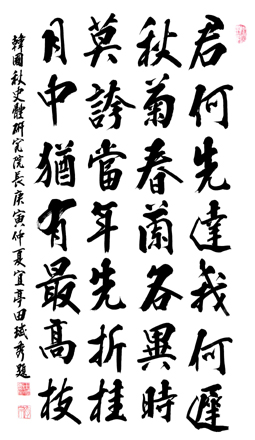 君何先達我何遲
秋菊春蘭各異時
莫誇當年先折桂
月中猶有最高枝
韓國秋史體研究院長庚寅仲夏宜亭田秀題